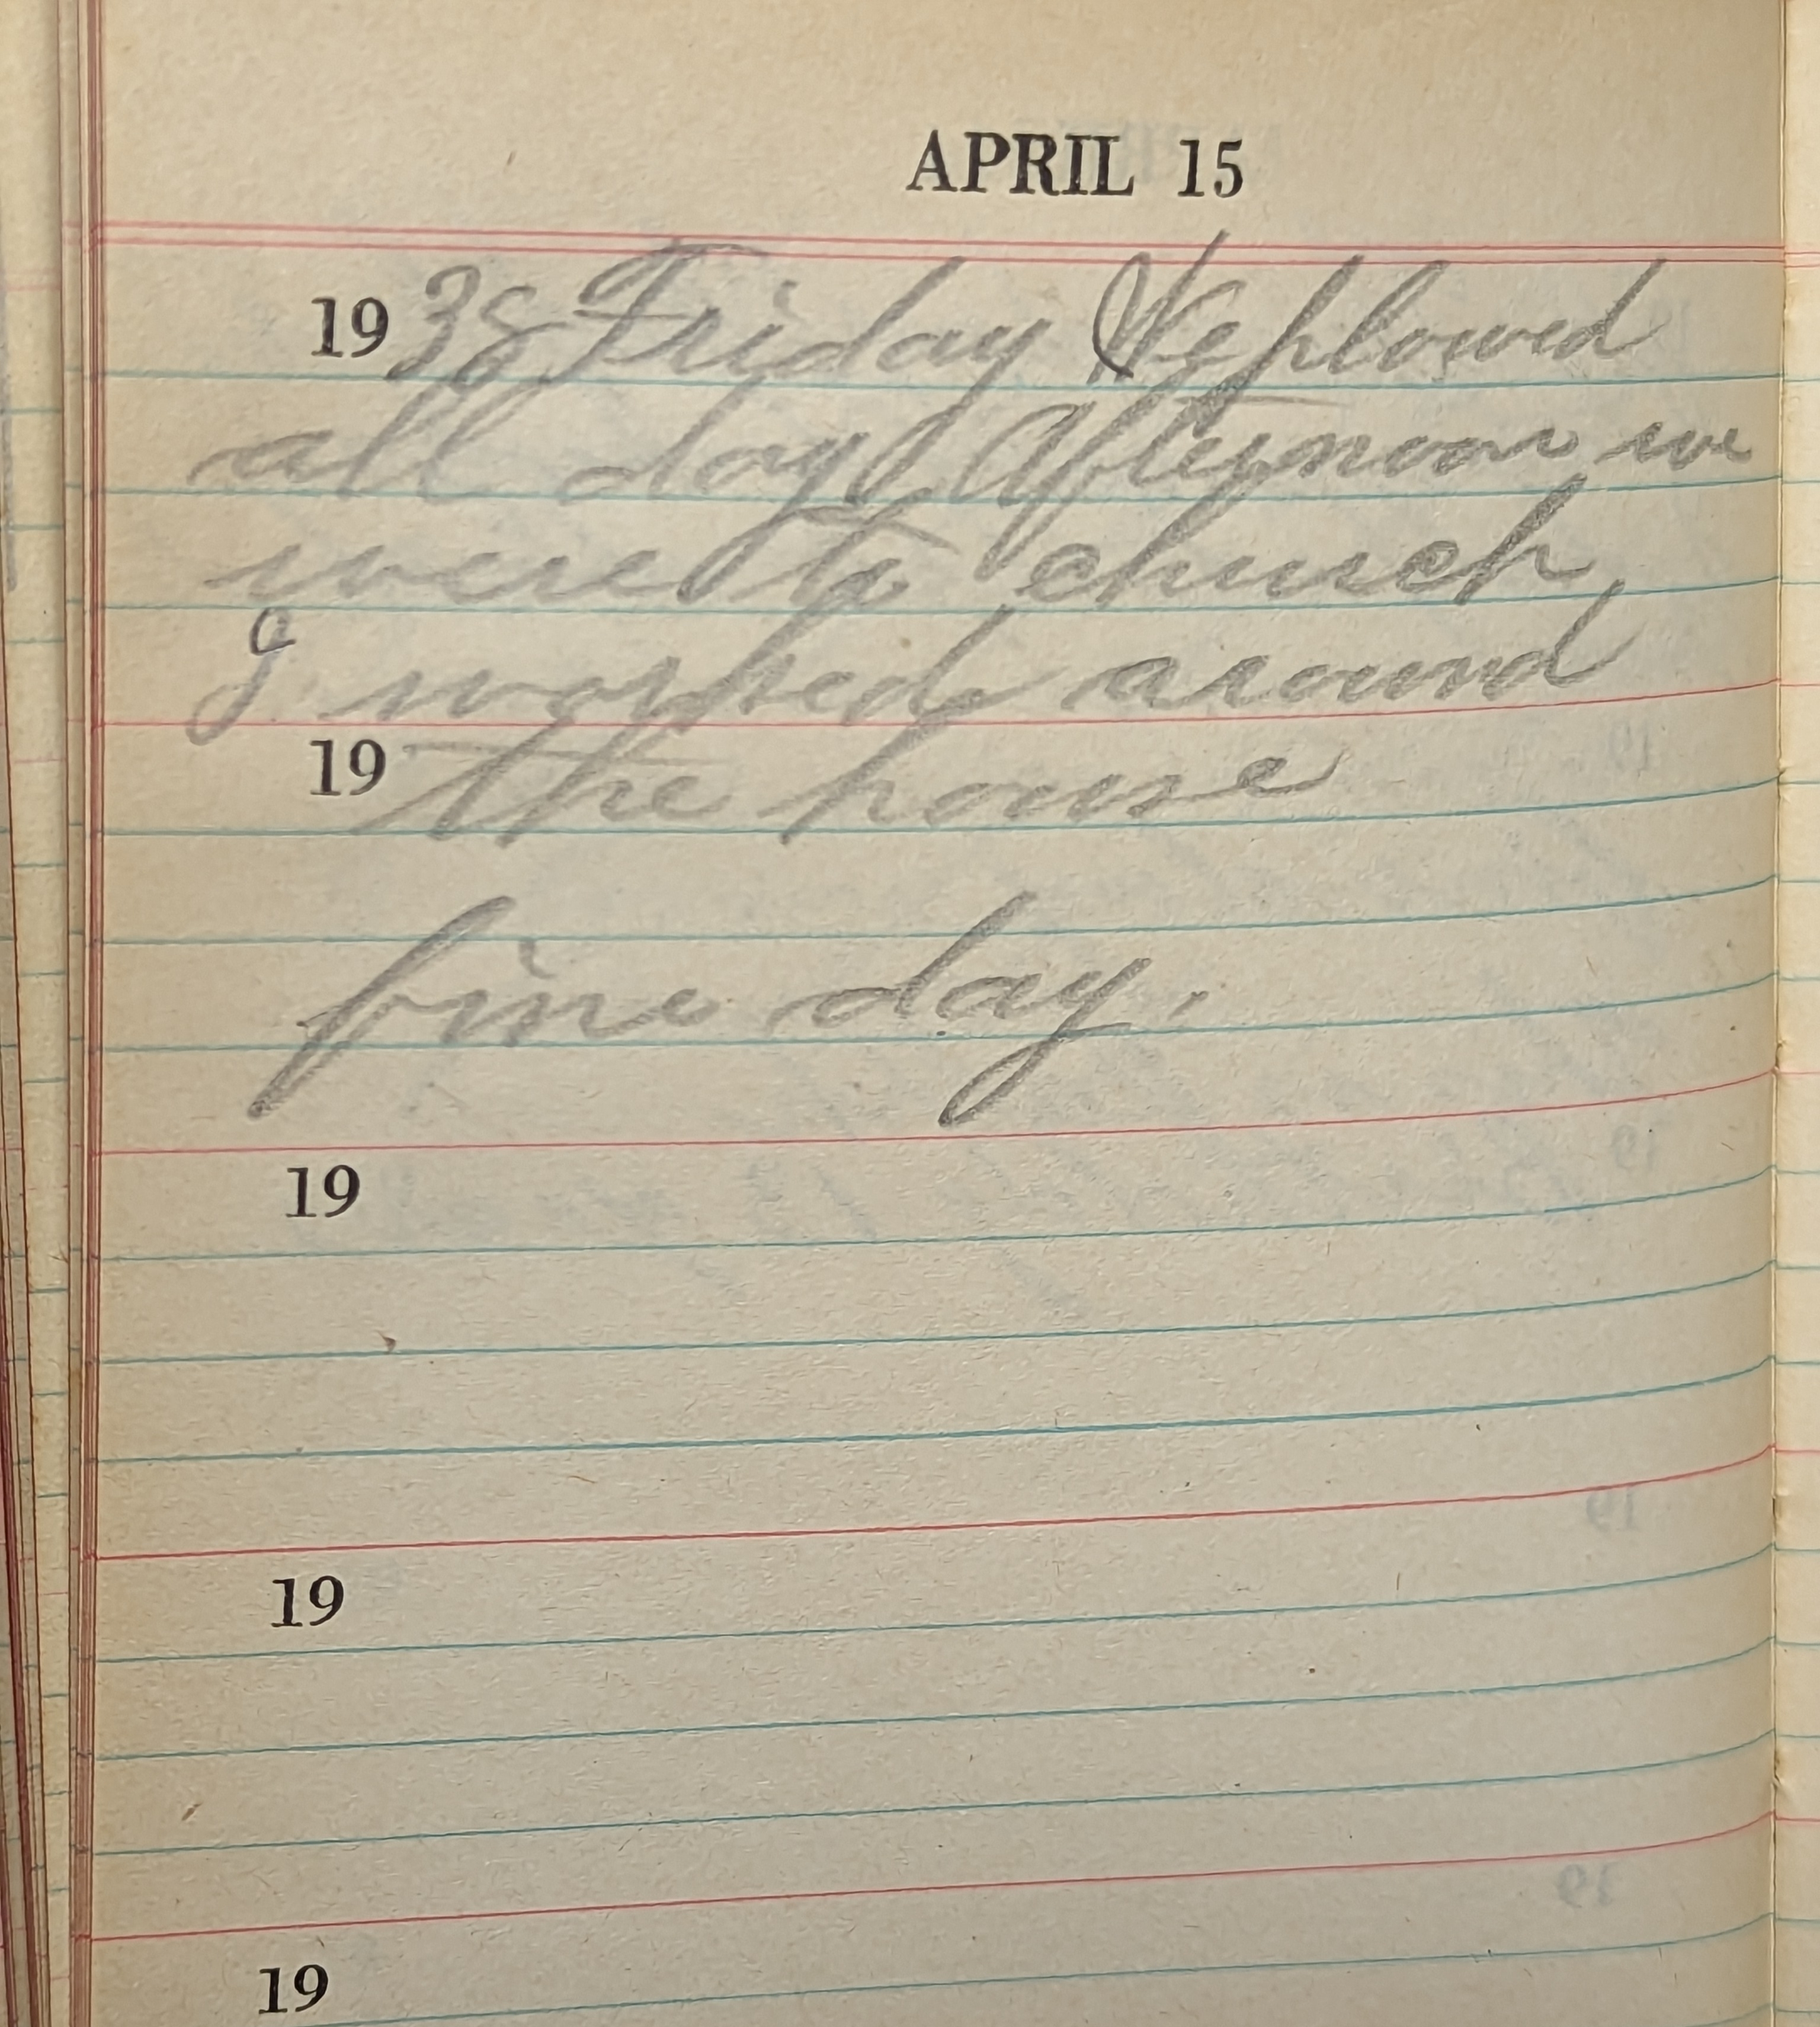 APRIL 15
1938 Friday We plowed
all day Afternoon we
were to church
I worked around
19 the house
fine day.
19
19
19